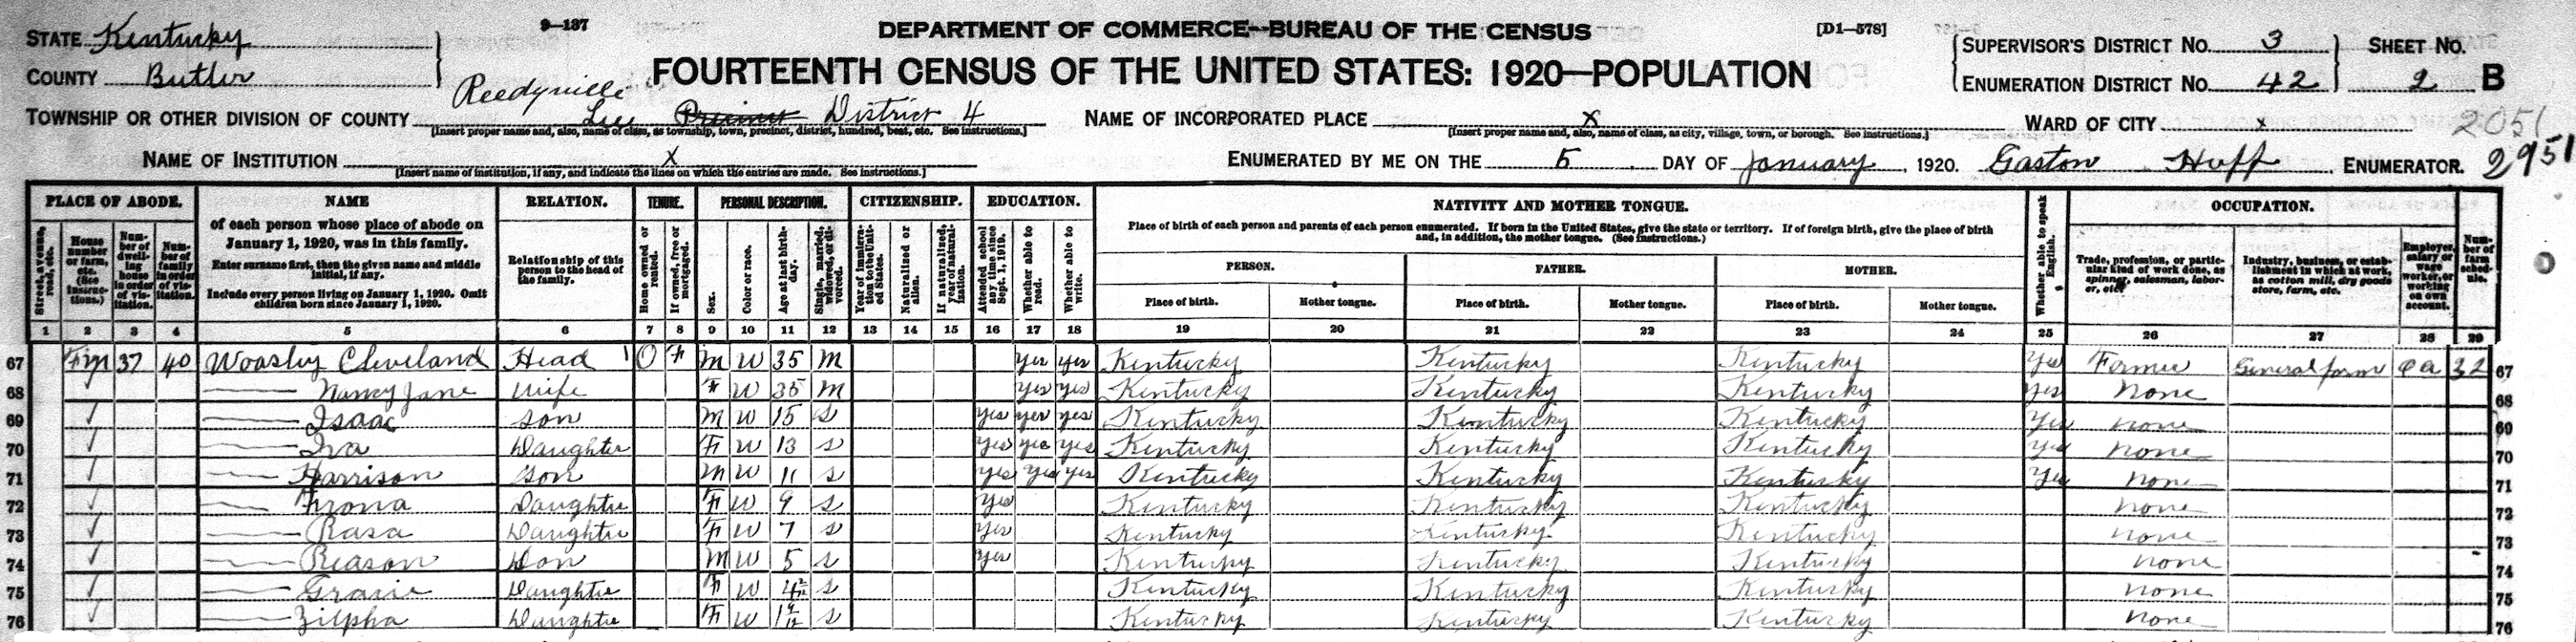 STATE Kentucky
9-137
DEPARTMENT OF COMMERCE--BUREAU OF THE CENSUS
[D1-578]
SUPERVISOR'S DISTRICT NO. 3
SHEET NO.
COUNTY Butler
FOURTEENTH CENSUS OF THE UNITED STATES: 1920—POPULATION
ENUMERATION DISTRICT NO. 42
2 B
Reedyville
TOWNSHIP OR OTHER DIVISION OF COUNTY Lee Precinct District 4
[Insert proper name and, also, name of class, as township, town, precinct, district, hundred, beat, etc. See instructions.]
NAME OF INCORPORATED PLACE X
[Insert proper name and, also, name of class, as city, village, town, or borough. See instructions.]
WARD OF CITY x
2051
NAME OF INSTITUTION X
[Insert name of institution, if any, and indicate the lines on which the entries are made. See instructions.]
ENUMERATED BY ME ON THE 5 DAY OF January, 1920. Gaston Huff ENUMERATOR.
2951
PLACE OF ABODE.
NAME
RELATION.
TENURE.
PERSONAL DESCRIPTION.
CITIZENSHIP.
EDUCATION.
NATIVITY AND MOTHER TONGUE.
OCCUPATION.
Street, avenue, road, etc.
House number or farm, etc. (See instructions.)
Number of dwelling house in order of visitation.
Number of family in order of visitation.
of each person whose place of abode on January 1, 1920, was in this family.
Enter surname first, then the given name and middle initial, if any.
Include every person living on January 1, 1920. Omit children born since January 1, 1920.
Relationship of this person to the head of the family.
Home owned or rented.
If owned, free or mortgaged.
Sex.
Color or race.
Age at last birthday.
Single, married, widowed, or divorced.
Year of immigration to the United States.
Naturalized or alien.
If naturalized, year of naturalization.
Attended school any time since Sept. 1, 1919.
Whether able to read.
Whether able to write.
Place of birth of each person and parents of each person enumerated. If born in the United States, give the state or territory. If of foreign birth, give the place of birth and, in addition, the mother tongue. (See instructions.)
PERSON.
FATHER.
MOTHER.
Place of birth.
Mother tongue.
Place of birth.
Mother tongue.
Place of birth.
Mother tongue.
Whether able to speak English.
Trade, profession, or particular kind of work done, as spinner, salesman, laborer, etc.
Industry, business, or establishment in which at work, as cotton mill, dry goods store, farm, etc.
Employer, salary or wage worker, or working on own account.
Number of farm schedule.
1 2 3 4 5 6 7 8 9 10 11 12 13 14 15 16 17 18 19 20 21 22 23 24 25 26 27 28 29
67 Fm 37 40 Woosley Cleveland Head 1 O F M W 35 M Yes Yes Kentucky Kentucky Kentucky Yes Farmer General farm OA 32 67
68 Nancy Jane Wife F W 35 M Yes Yes Kentucky Kentucky Kentucky Yes None 68
69 Isaac Son M W 15 S Yes Yes Yes Kentucky Kentucky Kentucky Yes None 69
70 Iva Daughter F W 13 S Yes Yes Yes Kentucky Kentucky Kentucky Yes None 70
71 Harrison Son M W 11 S Yes Yes Yes Kentucky Kentucky Kentucky Yes None 71
72 Frona Daughter F W 9 S Yes Kentucky Kentucky Kentucky None 72
73 Rasa Daughter F W 7 S Yes Kentucky Kentucky Kentucky None 73
74 Reason Son M W 5 S Yes Kentucky Kentucky Kentucky None 74
75 Gracie Daughter F W S Kentucky Kentucky Kentucky None 75
76 Zilpha Daughter F W S Kentucky Kentucky Kentucky None 76